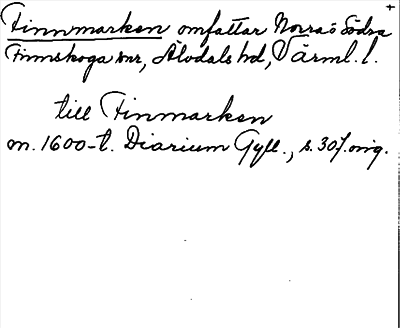 Finnmarken omfattar Norra o Södra +
Finnskoga snr, Älvdals hd, Värml. l.
till Finmarken
m. 1600-t. Diarium Gyll., s. 307. orig.